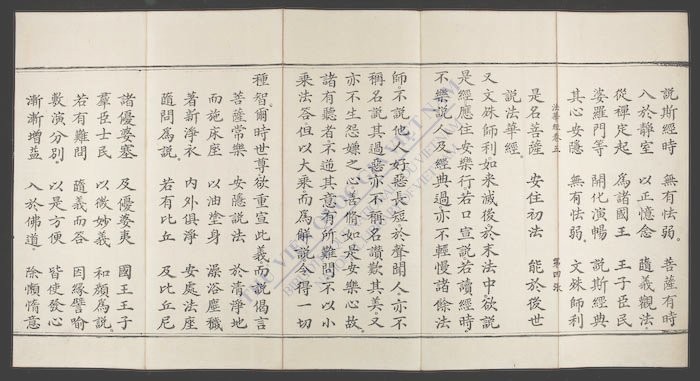 說斯經時 無有怯弱 菩薩有時
入於靜室 以正憶念 隨義觀法
從禪定起 為諸國王 王子臣民
婆羅門等 開化演暢 說斯經典
其心安隱 無有怯弱 文殊師利
法華經卷五 第四張
是名菩薩 安住初法 能於後世
說法華經
又文殊師利如来滅後於末法中欲說
是經應住安樂行若口宣說若讀經時
不樂說人及經典過亦不輕慢諸餘法
師不說他人好惡長短於聲聞人亦不
稱名說其過惡亦不稱名讚歎其美又
亦不生怨嫌之心善脩如是安樂心故
諸有聽者不逆其意有所難問不以小
乘法答但以大乘而為解說令得一切
種智爾時世尊欲重宣此義而說偈言
菩薩常樂 安隱說法 於清淨地
而施床座 以油塗身 澡浴塵穢
著新淨衣 內外俱淨 安處法座
隨問為說 若有比丘 及比丘尼
諸優婆塞 及優婆夷 國王王子
羣臣士民 以微妙義 和顏為說
若有難問 隨義而答 因緣譬喻
敷演分別 以是方便 皆使發心
漸漸增益 入於佛道 除懶惰意